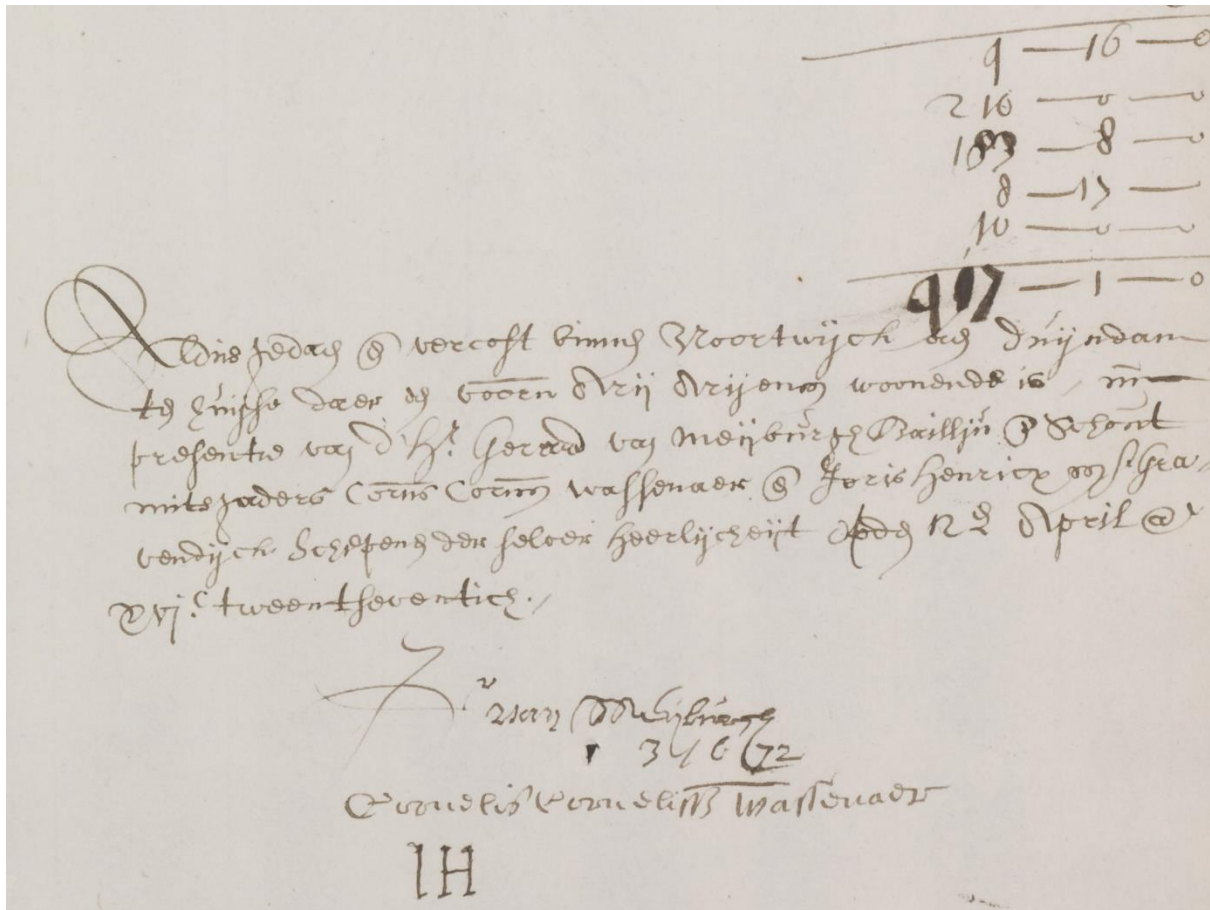 9 — 16 — 0
210 — 0 — 0
183 — 8 — 0
8 — 17 —
10 — 0 — 0
917 — 1 — 0
Aldus gedaen & vercoft binnen Noortwijck den duijndam
ten huijse daer den voorn Arij Arijensz woonende is, in
presentie van d'Hr. Gerard van Meijburgh Bailliu & Schout
mitsgaders Corns Cornsz wassenaer & Joris Henricx van sGra-
vendijck Schepens der selver heerlijcheijt opden 12e April @
xvjC tweentseventich.
van Meijburgh
3 1672
Cornelis Cornelissz Wassenaer
IH